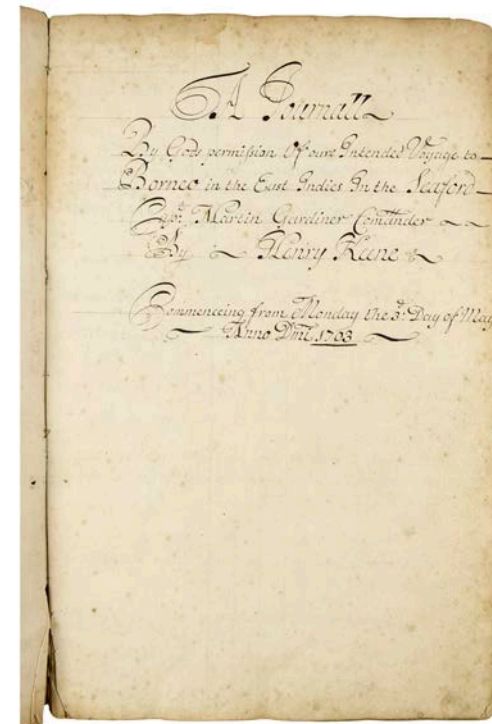 A Journall
By Gods permission Of oure Intended Voyage to
Borneo in the East Indies In the Seaford
Capt. Martin Gardiner Comander
By Henry Keene
Commenceing from Monday the 3d. Day of May
Anno Dmi 1703